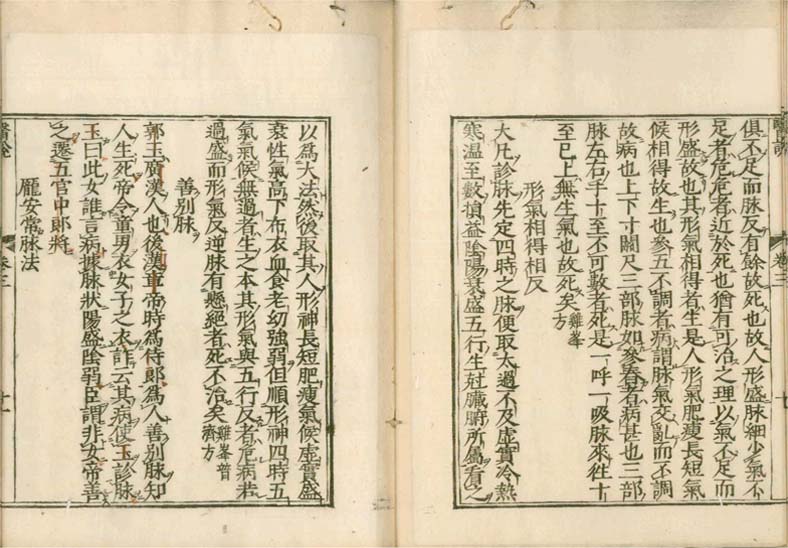 俱不足而脉反有餘故死也故人形盛脉細少氣不
足者危危者近於死也猶有可治之理以氣不足而
形盛故也其形氣相得者生是人形氣肥瘦長短氣
候相得故生也參五不調者病謂脉氣交亂而不調
故病也上下寸關尺三部脉如參舂者病甚也三部
脉左右手十至不可數者死是一呼一吸脉來徃十
至已上無生氣也故死矣雞峯方
形氣相得相反
大凢診脉先定四時之脉便取太過不及虛實冷熱
寒温至數損益陰陽衰盛五行生尅臟腑所屬看之
醫說
卷三
十
以爲大法然後取其人形神長短肥瘦氣候虛實盛
衰性氣高下布衣血食老幼強弱但順形神四時五
氣氣候無過者生之本其形氣與五行反者危病若
過盛而形氣反逆脉有懸絕者死不治矣雞峯普濟方
善別脉
郭玉廣漢人也後漢章帝時爲侍郎爲人善別脉知
人生死帝令童男衣女子之衣詐云其病使玉診脉
玉曰此女誰言病據脉狀陽盛陰弱臣謂非女帝善
之遷五官中郎將
龐安常脉法
醫說
卷三
十一